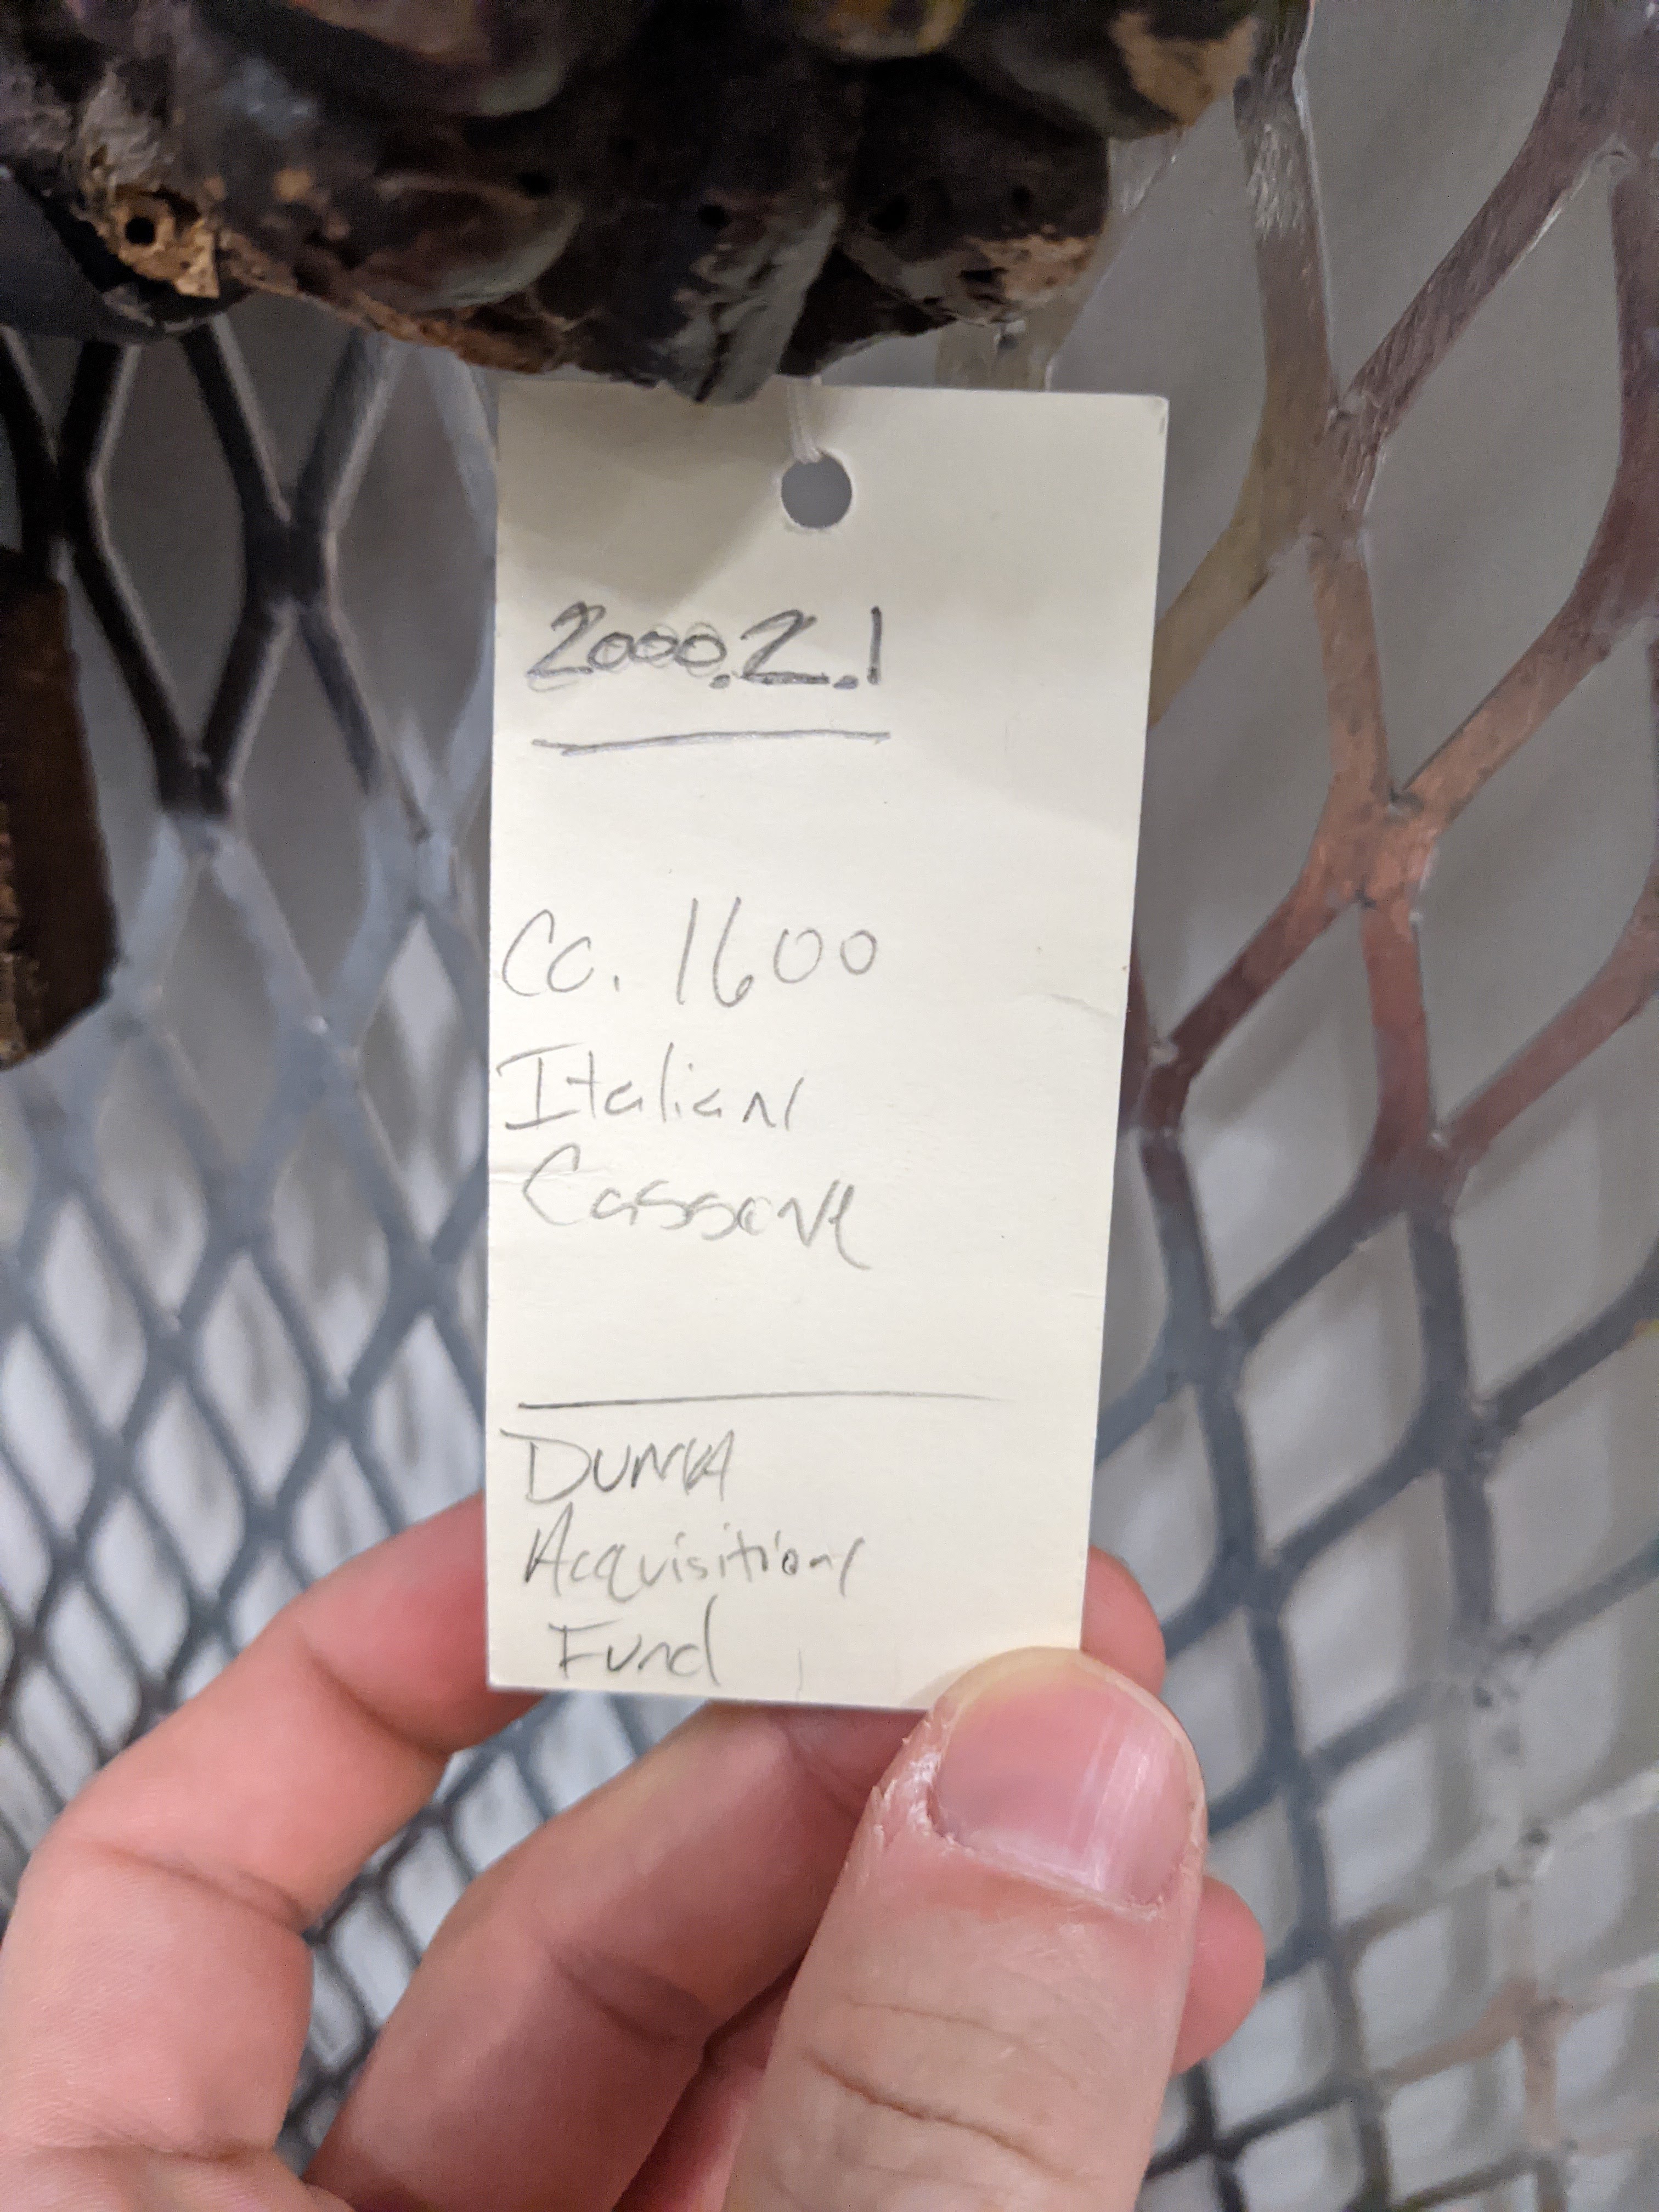 2000.2.1
Ca. 1600
Italian
Cassone
Acquisition
Fund